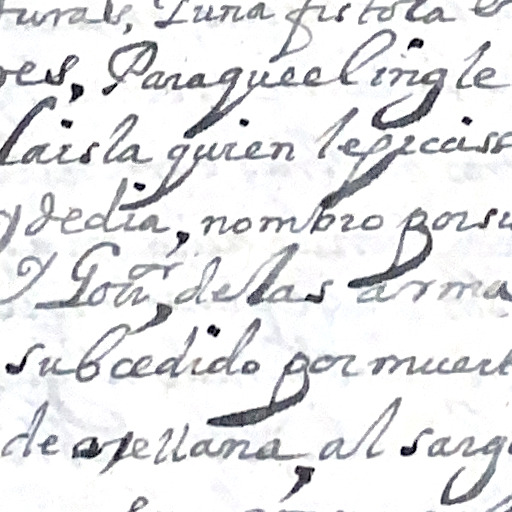 turas, Y una pistola
es, Para que el ingle
la isla quien le
y de dia, nombro por su
Y Gou.or, de las arma
subcedido por muert
de arellana, al sarg